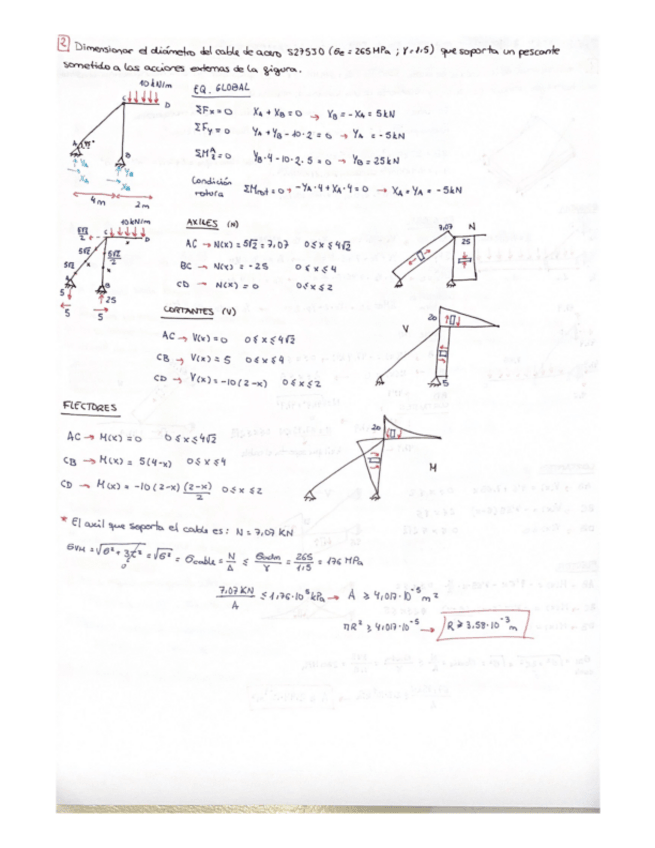 2 Dimensionar el diámetro del cable de acero S275J0 (σe = 265 MPa ; γ=1.5) que soporta un pescante
sometido a las acciones externas de la figura.
10 kN/m
C
D
A
B
YA
XA
YB
XB
4 m
2 m
EQ. GLOBAL
ΣFx = 0 XA + XB = 0 → XB = -XA = 5 kN
ΣFy = 0 YA + YB - 10·2 = 0 → YA = -5 kN
ΣM A = 0 YB·4 - 10·2·5 = 0 → YB = 25 kN
Condición
rotura ΣMrot = 0 → -YA·4 + XA·4 = 0 → XA = YA = -5 kN
10 kN/m
C
D
A
B
5
5
25
5
AXILES (N)
AC → N(x) = 5√2 = 7,07 0 ≤ x ≤ 4√2
BC → N(x) = -25 0 ≤ x ≤ 4
CD → N(x) = 0 0 ≤ x ≤ 2
7,07
N
25
CORTANTES (V)
AC → V(x) = 0 0 ≤ x ≤ 4√2
CB → V(x) = 5 0 ≤ x ≤ 4
CD → V(x) = -10 (2-x) 0 ≤ x ≤ 2
20
V
5
FLECTORES
AC → M(x) = 0 0 ≤ x ≤ 4√2
CB → M(x) = 5(4-x) 0 ≤ x ≤ 4
CD → M(x) = -10 (2-x) (2-x)/2 0 ≤ x ≤ 2
20
M
* El axil que soporta el cable es: N = 7,07 KN
σVM = √σ² + 3τ² = √σ² = σcable = N/A ≤ σadm/γ = 265/1,5 = 176 MPa
7,07 KN/A ≤ 1,76·10⁵ kPa → A ≥ 4,017·10⁻⁵ m²
πR² ≥ 4,017·10⁻⁵ → R ≥ 3.58·10⁻³ m